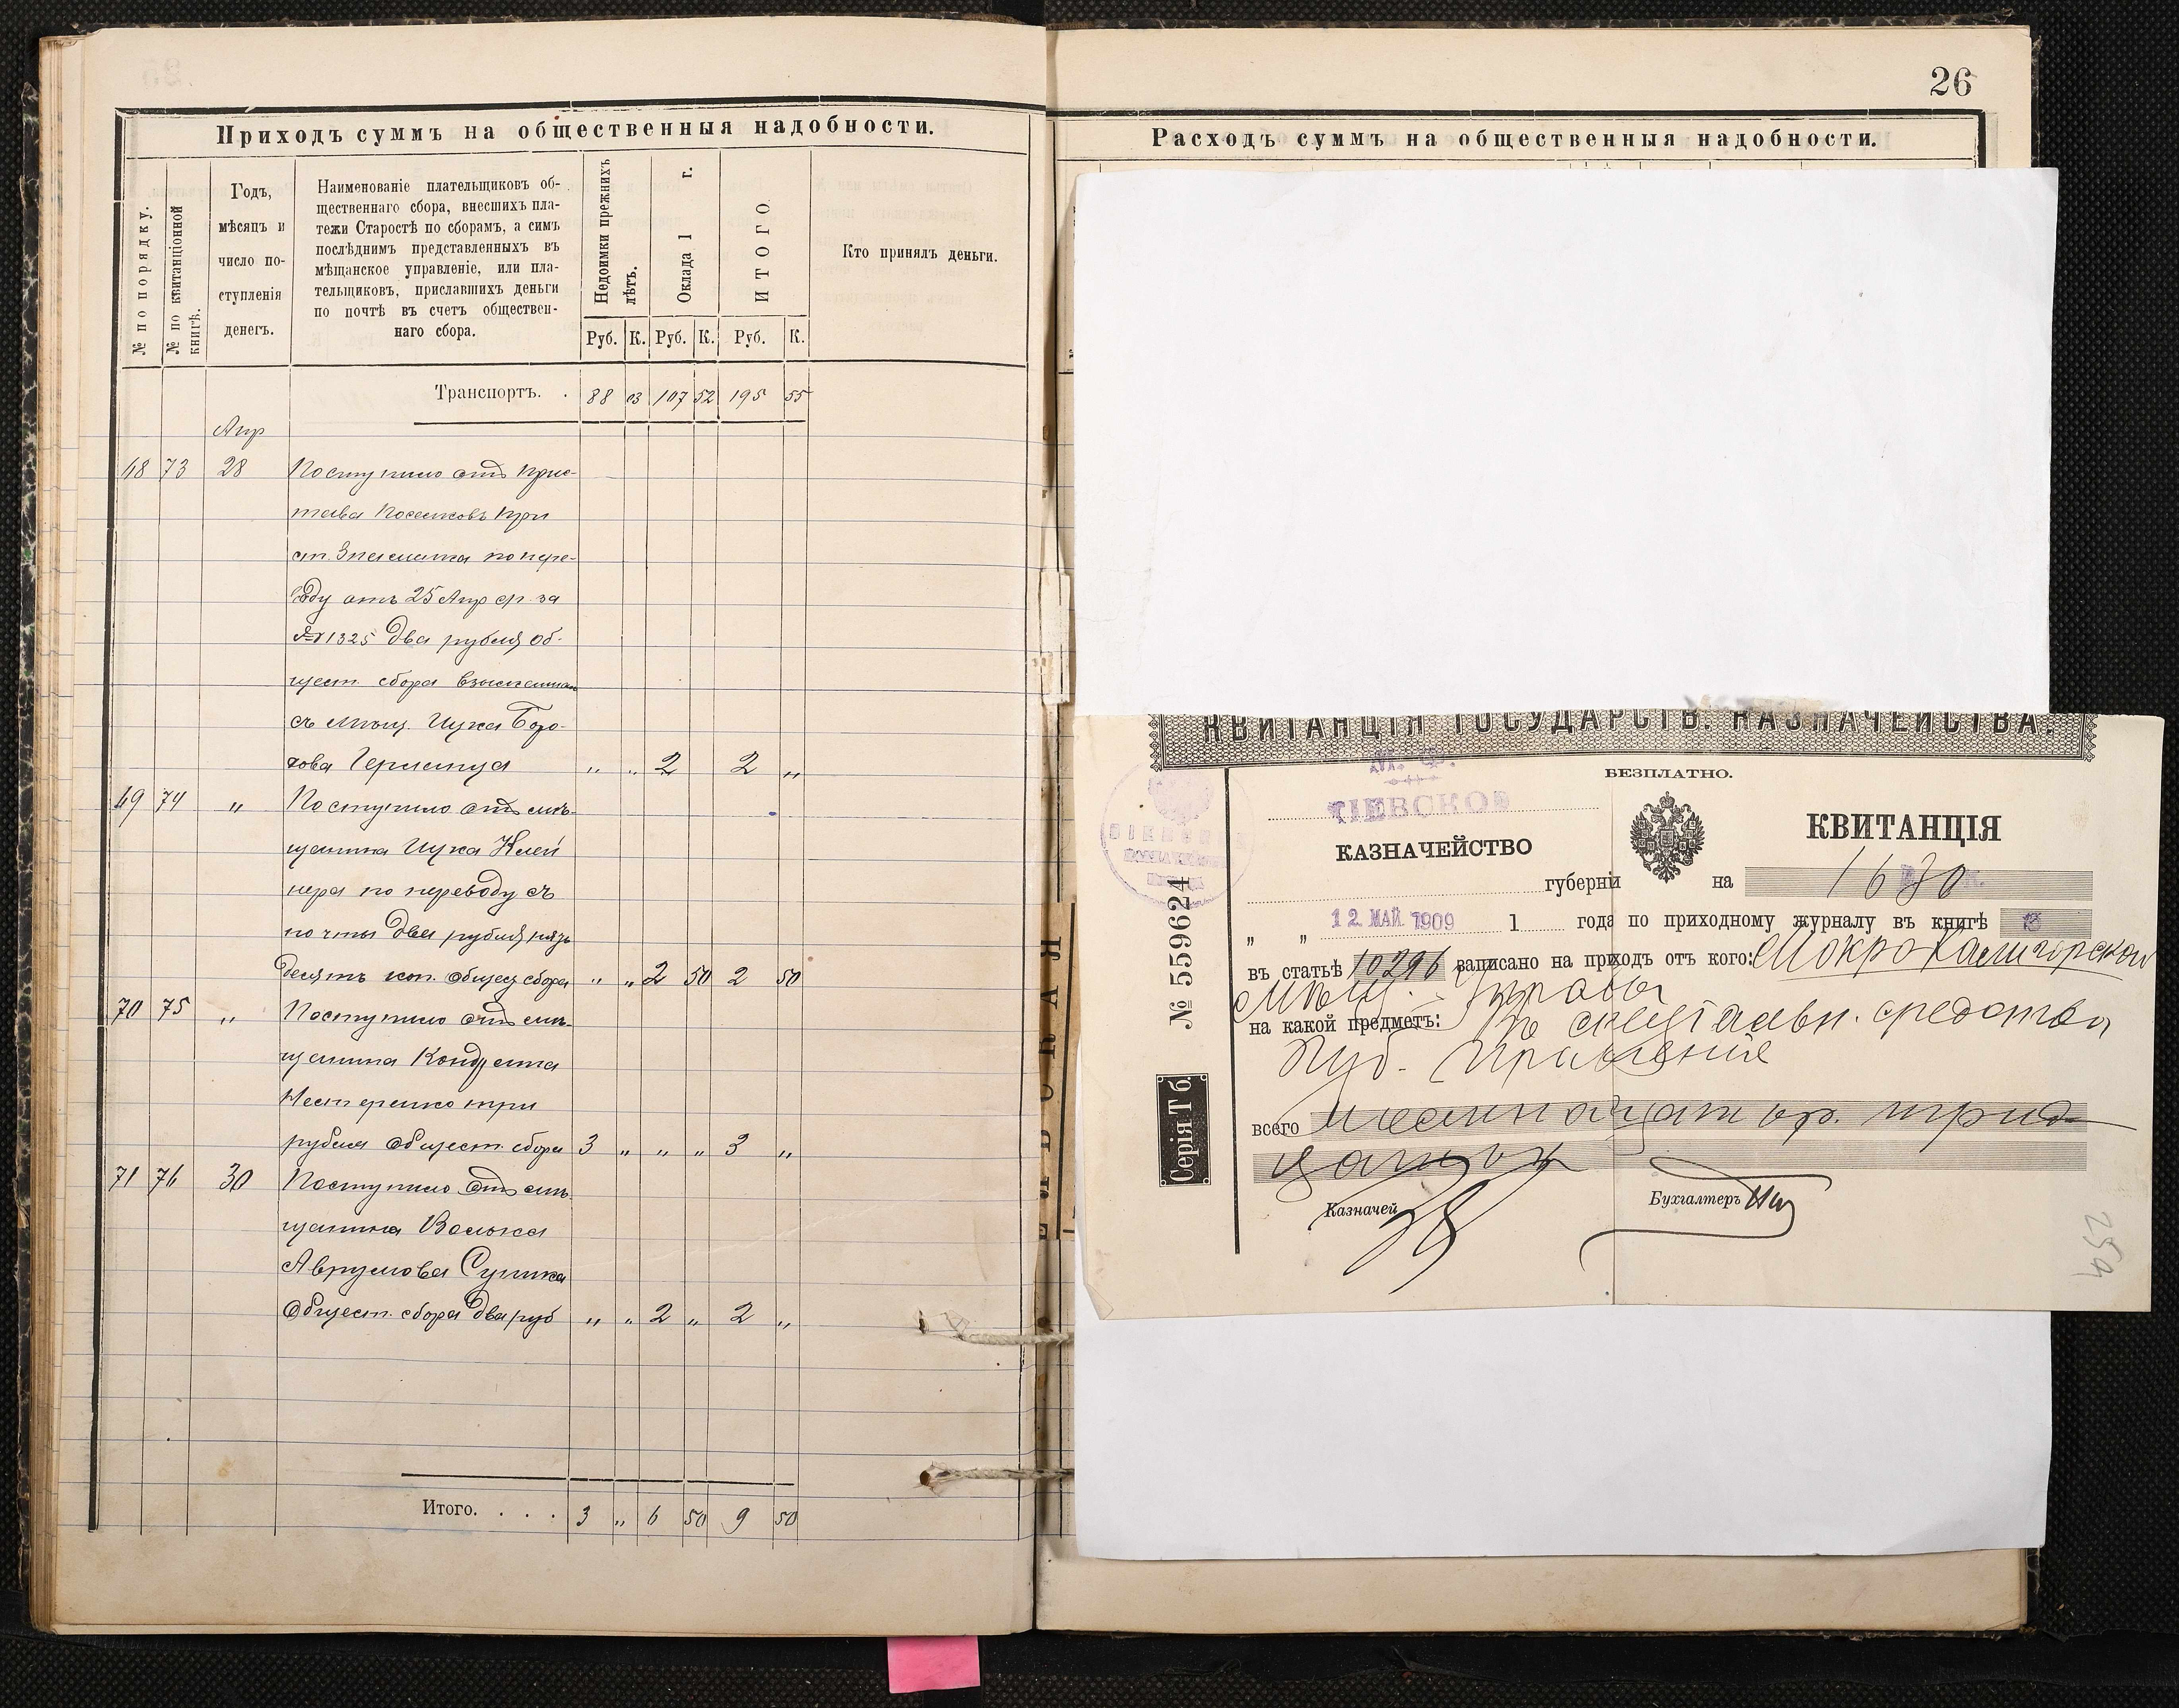 Приходъ суммъ на общественныя надобности.
№ по порядку.
№ по квитанціонной книгѣ.
Годъ,
мѣсяцъ и
число по-
ступленія
денегъ.
Наименованіе плательщиковъ об-
щественнаго сбора, внесшихъ пла-
тежи Старостѣ по сборамъ, а симъ
послѣднимъ представленныхъ въ
мѣщанское управленіе, или пла-
тельщиковъ, приславшихъ деньги
по почтѣ въ счетъ обществен-
наго сбора.
Недоимки прежнихъ лѣтъ.
Оклада 1 г.
ИТОГО
Кто принялъ деньги.
Руб. К. Руб. К. Руб. К.
Транспортъ. . 88 03 107 52 195 55
Апр
48 73 28 Поступило отъ при-
става Поселковъ при
ст. по пере-
воду отъ 25 Апр ср. за
№ 1325 два рубля об-
щест. сбора взысканная
съ мѣщ. Ицка Боро-
хова „ „ 2 2 „
49 74 „ Поступило отъ мѣ-
щанина Ицка Клей
нера по переводу съ
почты два рубля пять
десятъ коп. общес сбора „ „ 2 50 2 50
70 75 „ Поступило отъ мѣ-
щанина Кондрата
Нестеренко три
рубля общест. сбора 3 „ „ „ 3 „
71 76 30 Поступило отъ мѣ-
щанина Волька
Аврумова Супика
Общест. сбора два руб „ „ 2 „ 2 „
Итого. . . . 3 „ 6 50 9 50
26
Расходъ суммъ на общественныя надобности.
КВИТАНЦІЯ ГОСУДАРСТВ. КАЗНАЧЕЙСТВА.
БЕЗПЛАТНО.
М. Ф.
КІЕВСКОЕ
КАЗНАЧЕЙСТВО
КВИТАНЦІЯ
губерніи на 16 30
„ „ 12 МАЙ 1909 1 года по приходному журналу въ книгѣ
въ статьѣ 10296 записано на приходъ отъ кого: Мокро Калигорской
Мѣщ. Управы
на какой предметъ: въ спеціальн. средства
Губ. Правленія
всего шестнадцать р. трид
цать к
Казначей
Бухгалтеръ
№ 559624
Серія Т б.
259